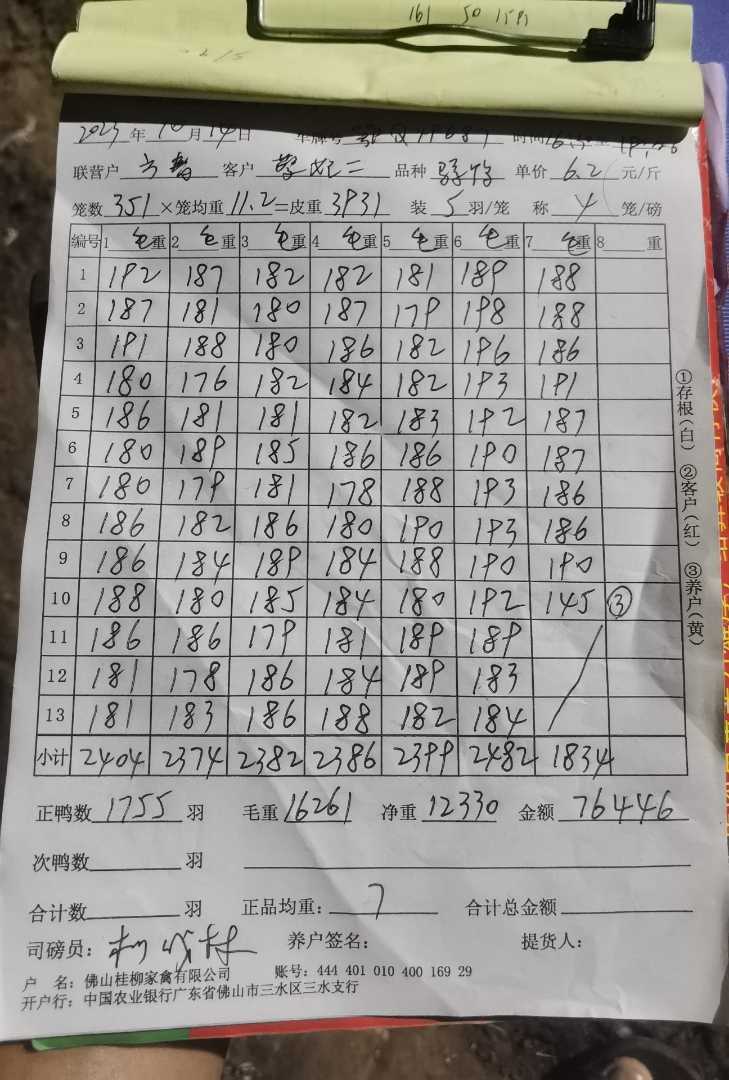 161 50 15P1
2025年10月14日 车牌号 时间
联营户 客户 品种 单价 6.2 元/斤
笼数 351 ×笼均重 11.2 =皮重 3931 装 5 羽/笼 称 4 笼/磅
编号 1 毛重 2 毛重 3 毛重 4 毛重 5 毛重 6 毛重 7 毛重 8 重
1 192 187 182 182 181 189 188
2 187 181 180 187 179 198 188
3 191 188 180 186 182 196 186
4 180 176 182 184 182 193 191
5 186 181 181 182 183 192 187
6 180 189 185 186 186 190 187
7 180 179 181 178 188 193 186
8 186 182 186 180 190 193 186
9 186 184 189 184 188 190 190
10 188 180 185 184 180 192 145 ③
11 186 186 179 181 189 189
12 181 178 186 184 189 183
13 181 183 186 188 182 184
小计 2404 2374 2382 2386 2399 2482 1834
正鸭数 1755 羽 毛重 16261 净重 12330 金额 76446
次鸭数 羽
合计数 羽 正品均重: 7 合计总金额
司磅员: 养户签名: 提货人:
户 名: 佛山桂柳家禽有限公司 账号: 444 401 010 400 169 29
开户行: 中国农业银行广东省佛山市三水区三水支行
①存根(白) ②客户(红) ③养户(黄)